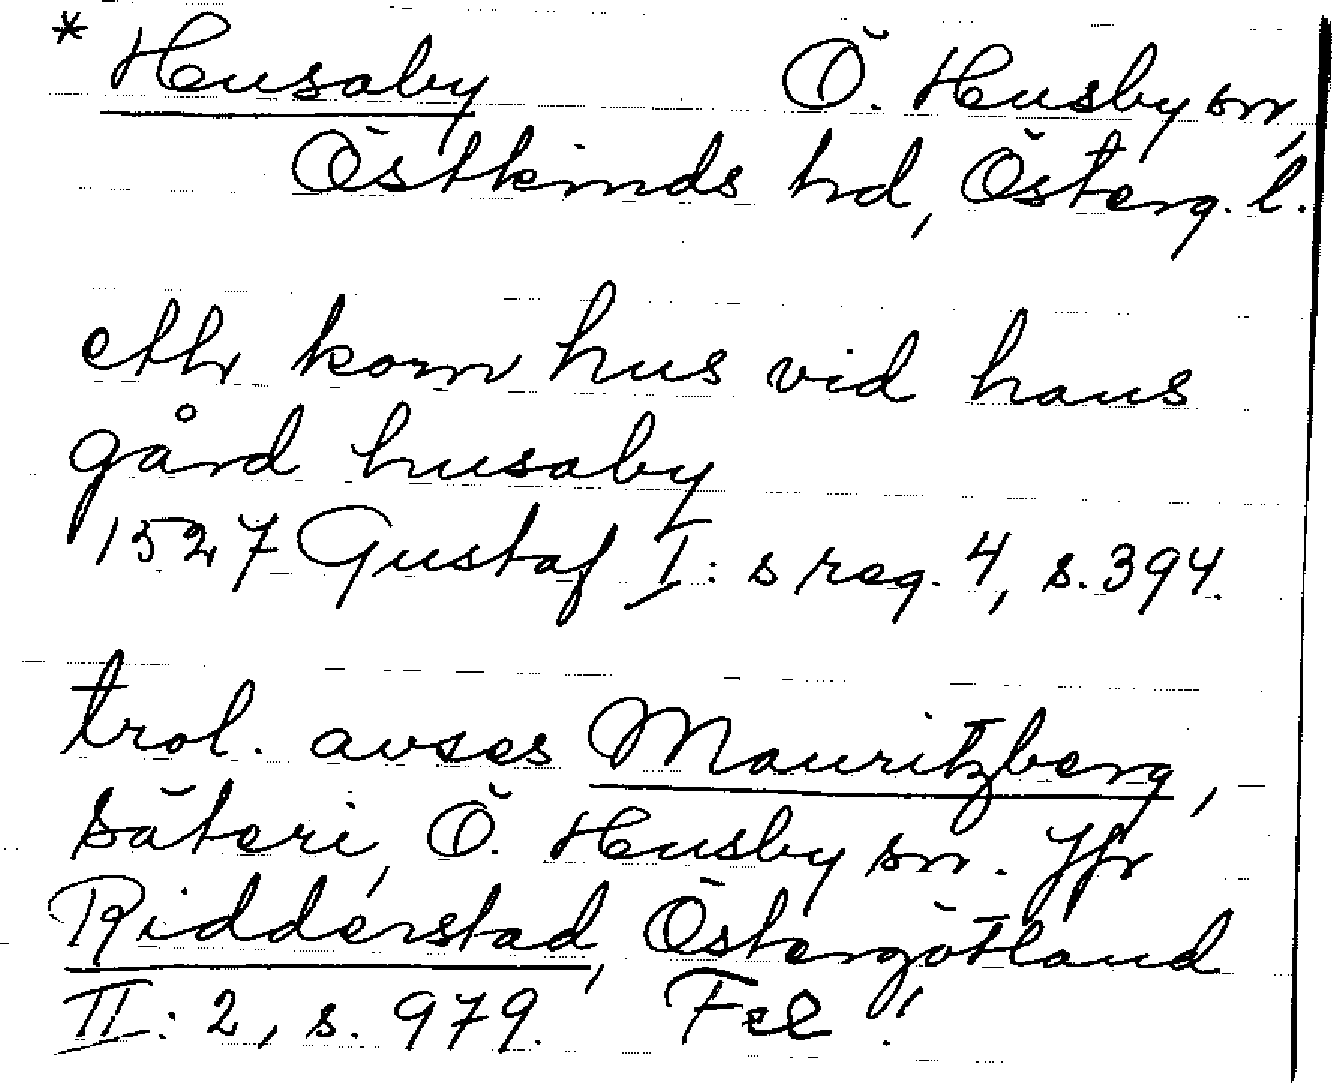 * Husaby Ö. Husby sn,
Östkinds hd, Österg. l.
etth korn hus vid hans
gård husaby
1527 Gustaf I: s reg. 4, s. 394.
trol. avses Mauritzberg,
säteri, Ö. Husby sn. Jfr
Ridderstad, Östergötland
II: 2, s. 979. Fel!